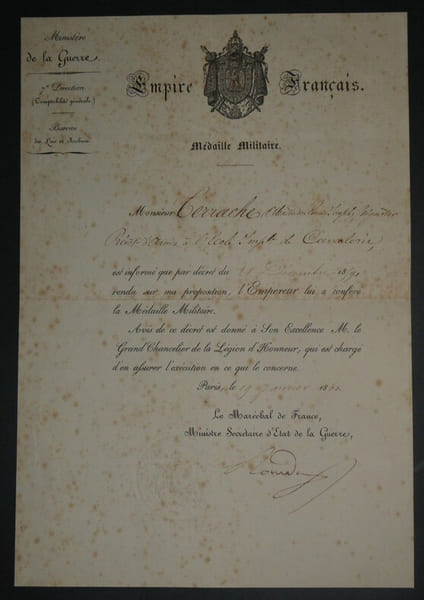 Ministère
de la Guerre.
7e Direction
(Comptabilité générale)
Bureau
des Lois et Archives
Empire Français.
Médaille Militaire.
Monsieur Terrache,
à l'École Imple de Cavalerie,
est informé que par décret du Décembre 18
rendu sur ma proposition, l'Empereur lui a conféré
la Médaille Militaire.
Avis de ce décret est donné à Son Excellence M. le
Grand Chancelier de la Légion d'Honneur, qui est chargé
d'en assurer l'exécution en ce qui le concerne.
Paris, le 19 Janvier 186
Le Maréchal de France,
Ministre Secrétaire d'État de la Guerre,